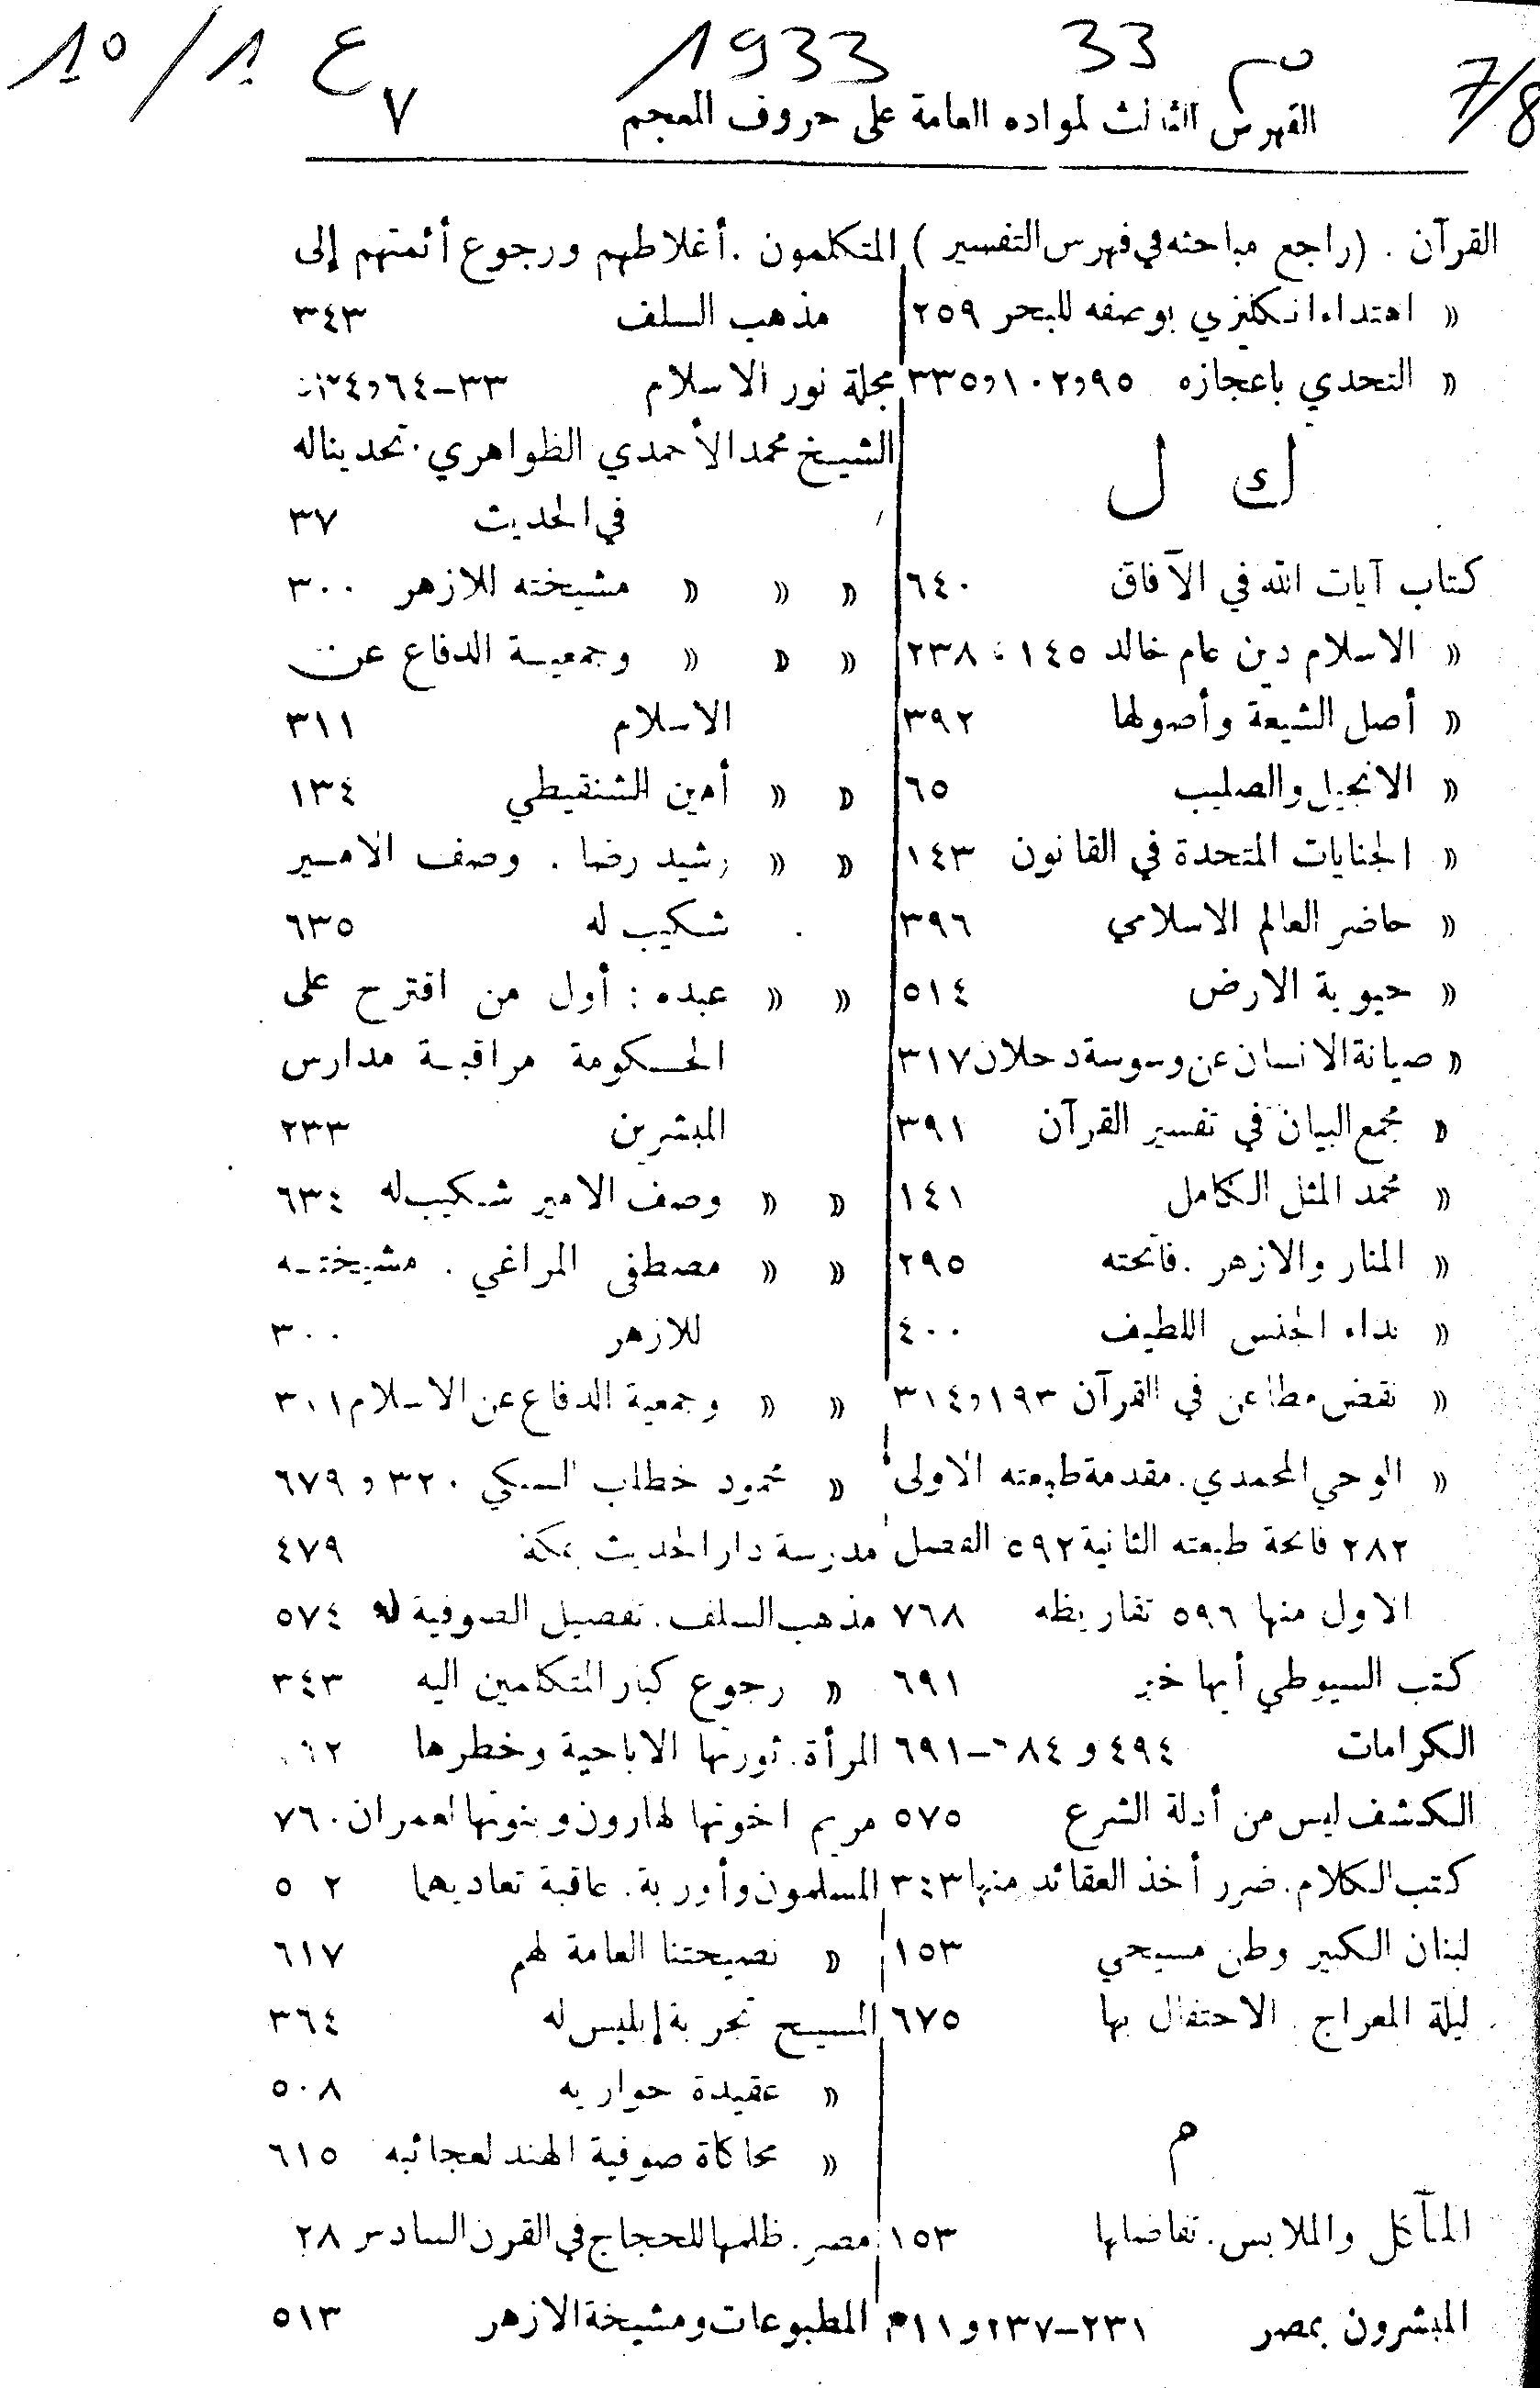 7/8 م س 33 1933 ع 10/1
الفهرس الثالث لمواده العامة على حروف المعجم ٧
القرآن . (راجع مباحثه في فهرس التفسير )
« اهتداء انكليزي بوصفه للبحر ٢٥٩
« التحدي باعجازه ٩٥و١٠٢و٣٣٥
ك ل
كتاب آيات الله في الآفاق ٦٤٠
« الاسلام دين عام خالد ١٤٥ ، ٢٣٨
« أصل الشيعة وأصولها ٣٩٢
« الانجيل والصليب ٦٥
« الجنايات المتحدة في القانون ١٤٣
« حاضر العالم الاسلامي ٣٩٦
« حيوية الارض ٥١٤
« صيانة الانسان عن وسوسة دحلان ٣١٧
« مجمع البيان في تفسير القرآن ٣٩١
« محمد المثل الكامل ١٤١
« المنار والازهر . فاتحته ٢٩٥
« نداء الجنس اللطيف ٤٠٠
« نقض مطاعن في القرآن ١٩٣و٣١٤
« الوحي المحمدي . مقدمة طبعته الاولى
٢٨٢ فاتحة طبعته الثانية ٥٩٢ الفصل
الاول منها ٥٩٦ تقاريظه ٧٦٨
كتب السيوطي أيها خير ٦٩١
الكرامات ٤٩٤ و ٦٨٤-٦٩١
الكشف ليس من أدلة الشرع ٥٧٥
كتب الكلام . ضرر أخذ العقائد منها ٣٤٣
لبنان الكبير وطن مسيحي ١٥٣
ليلة المعراج . الاحتفال بها ٦٧٥
م
المآكل والملابس . تفاضلها ١٥٣
المبشرون بمصر ٢٣١-٢٣٧و٣١١
المتكلمون . أغلاطهم ورجوع أئمتهم إلى
مذهب السلف ٣٤٣
مجلة نور الاسلام ٣٣-٦٤و
الشيخ محمد الأحمدي الظواهري . تحديناله
في الحديث ٣٧
« « « مشيخته للازهر ٣٠٠
« « « وجمعية الدفاع عن
الاسلام ٣١١
« « أمين الشنقيطي ١٣٤
« « رشيد رضا . وصف الامير
شكيب له ٦٣٥
« « عبده : أول من اقترح على
الحكومة مراقبة مدارس
المبشرين ٢٣٣
« « وصف الامير شكيب له ٦٣٤
« « مصطفى المراغي . مشيخته
للازهر ٣٠٠
« « وجمعية الدفاع عن الاسلام ٣٠١
« محمود خطاب السبكي ٣٢٠ و ٦٧٩
مدرسة دار الحديث بمكة ٤٧٩
مذهب السلف . تفضيل الصوفية له ٥٧٤
« رجوع كبار المتكلمين اليه ٣٤٣
المرأة . ثورتها الاباحية وخطرها
مريم اخوتها لهارون وبنوتها لعمران ٧٦٠
المسلمون وأوربة . عاقبة تعاديهما
« نصيحتنا العامة لهم ٦١٧
المسيح تجربة إبليس له ٣٦٤
« عقيدة حواريه ٥٠٨
« محاكاة صوفية الهند لعجائبه ٦١٥
مصر . ظلمها للحجاج في القرن السادس ٢٨
المطبوعات ومشيخة الازهر ٥١٣